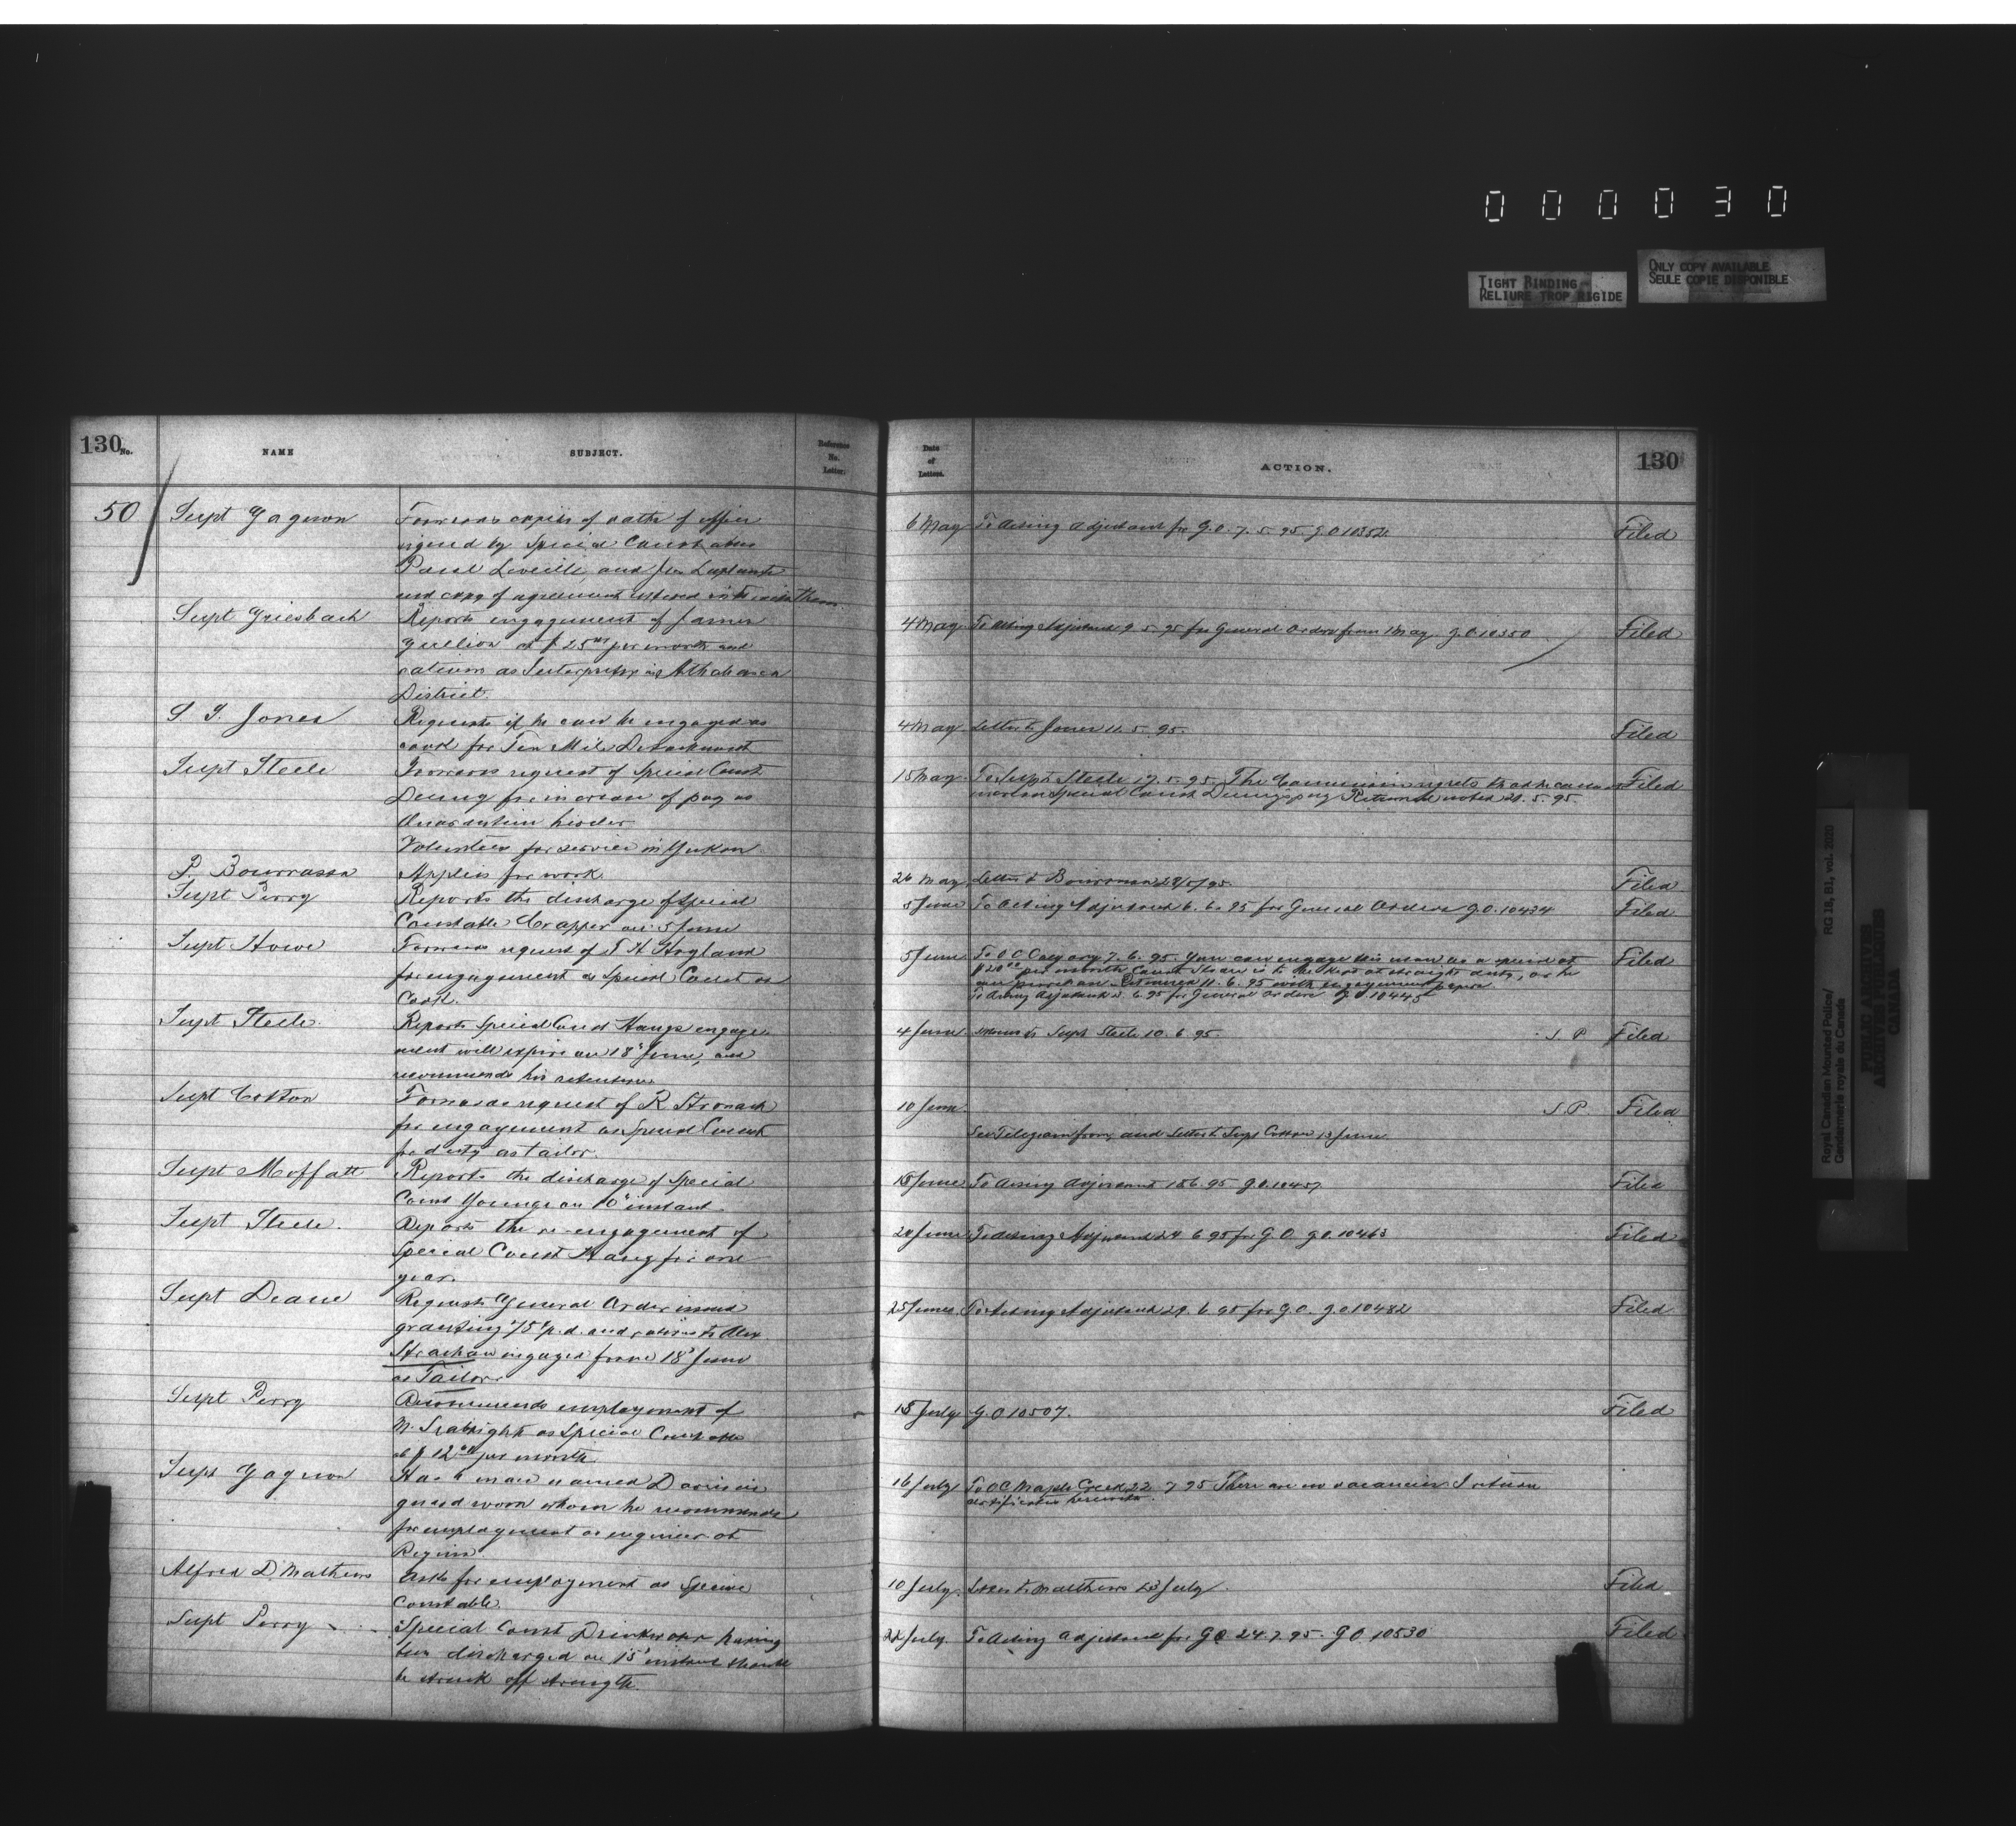 000030
TIGHT BINDING
RELIURE TROP RIGIDE
ONLY COPY AVAILABLE
SEULE COPIE DISPONIBLE
130
No.
NAME
SUBJECT.
Reference
No.
Letter.
50
Supt Gagnon
Forwards copies of oaths of office
signed by Special Constables
Léveillé, and Laplante
and copy of agreement entered into with them
Supt Griesbach
Reports engagement of James
at $25 00 per month and
rations as Interpreter in Athabasca
District.
S. T. Jones
Requests if he can be engaged as
cook for Ten Mile Detachment
Supt Steele
Forwards request of Special Const
for increase of pay as
Quarantine herder
Volunteers for service in Yukon
P. Bourrassa
Applies for work
Supt Perry
Reports the discharge of Special
Constable Crapper on 5 June
Supt Howe
Forwards request of T H Hogland
for engagement as Special Const as
Cook.
Supt Steele.
Reports Special Const Haugs engage
ment will expire on 18" June, and
recommends his retention
Supt Cotton
Forwards request of R Stronach
for engagement as Special Const
for duty as tailor.
Supt Moffatt
Reports the discharge of Special
Const Younge on 10" instant
Supt Steele.
Reports the re-engagement of
Special Const Haug for one
year.
Supt Deane
Requests General Order issued
granting 75¢ p.d. and rations to Alex
Strachan engaged from 18" June
as Tailor.
Supt Perry
Recommends employment of
N. Seabright as Special Constable
at $12 00 per month
Supt Gagnon
Has a man named Davis in
guard room whom he recommends
for employment as engineer at
Regina
Alfred D. Mathews
Asks for employment as Special
Constable.
Supt Perry
Special Const having
been discharged on 15 instant should
be struck off strength.
Date
of
Letters.
ACTION.
130
6 May To Acting Adjutant for G.O. 7. 5. 95. G.O 10352. Filed
4 May To Acting Adjutant 9. 5. 95 for General Orders from 1 May. G.O 10350 Filed
4 May Letter to Jones 11. 5. 95. Filed
15 May To Supt Steele 17. 5. 95. The Commissioner regrets that he cannot Filed
increase Special Const pay Returned noted 20. 5. 95.
26 May Letter to Bourrassa 28/5/95. Filed
5 June To Acting Adjutant 6. 6. 95 for General Orders G.O. 10434 Filed
5 June To O C Calgary 7. 6. 95. You can engage this man as a special at Filed
$20 00 per month. Const is to be kept at straight duty, as he
Returned 11. 6. 95 with engagement papers
To Acting Adjutant 6. 95 for General Orders G.O 10445
4 June Memo to Supt Steele 10. 6. 95. S. P Filed
10 June S. P. Filed
See Telegram from, and Letter to Supt Cotton 13 June
15 June To Acting Adjutant 18.6.95 G.O.10457 Filed
20 June To Acting Adjutant 24. 6 95 for G.O. G.O. 10463 Filed
25 June To Acting Adjutant 29. 6 95 for G.O. G.O 10482 Filed
15 July G.O 10507. Filed
16 July To O.C. Maple Creek 22 7 95 There are no vacancies I return
certificates herewith.
10 July. Letter to Matthews 23 July. Filed
22 July. To Acting Adjutant for GO 24. 7. 95. GO 10530 Filed
Royal Canadian Mounted Police/
Gendarmerie royale du Canada
RG 18, B1, vol. 2020
PUBLIC ARCHIVES
ARCHIVES PUBLIQUES
CANADA